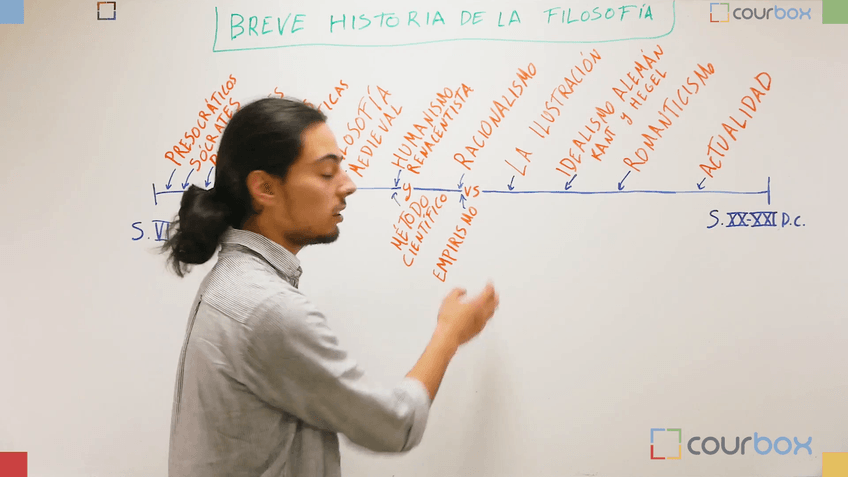 BREVE HISTORIA DE LA FILOSOFÍA
courbox
PRESOCRÁTICOS
SÓCRATES
MEDIEVAL
HUMANISMO
RENACENTISTA
y
MÉTODO
CIENTÍFICO
RACIONALISMO
VS
EMPIRISMO
LA ILUSTRACIÓN
IDEALISMO ALEMÁN
KANT y HEGEL
ROMANTICISMO
ACTUALIDAD
S. VI
S. XX-XXI D.C.
courbox